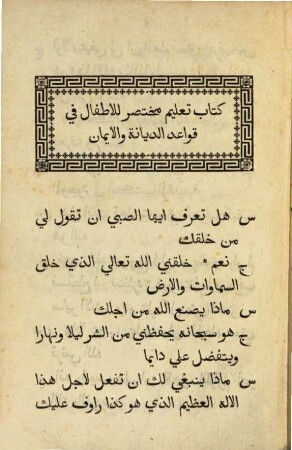 كتاب تعليم مختصر للاطفال في
قواعد الديانة والايمان
س هل تعرف ايها الصبي ان تقول لي
من خلقك
ج نعم * خلقني الله تعالي الذي خلق
السماوات والارض
س ماذا يصنع الله من اجلك
ج هو سبحانه يحفظني من الشر ليلا ونهارا
ويتفضل علي دايما
س ماذا ينبغي لك ان تفعل لاجل هذا
الاله العظيم الذي هو كذا راوف عليك